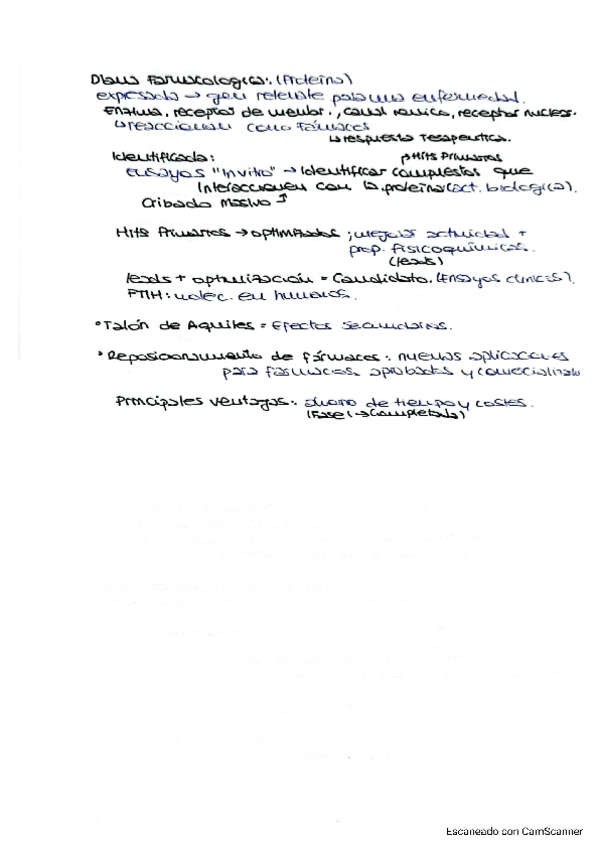 Diana Farmacológica: (Proteína)
expresada → gen relevante para una enfermedad.
Enzima, receptor de membr., canal iónico, receptor nuclear.
↳ reaccionan como fármacos
↳ respuesta terapeutica.
Identificada: ↱ Hits Primarios
ensayos "in vitro" → Identificar compuestos que
interaccionen con la proteína (act. biológica).
Cribado Masivo ↑
Hits Primarios → optimizados ; mejorar actividad +
prop. fisicoquímicas.
(leads)
leads + optimización = Candidato. (Ensayos clínicos).
FTIH: molec. en humanos.
• Talón de Aquiles = Efectos secundarios.
• Reposicionamiento de fármacos: nuevas aplicaciones
para fármacos aprobados y comercializados
Principales ventajas: ahorro de tiempo y costes.
(Fase I → Completada)
Escaneado con CamScanner